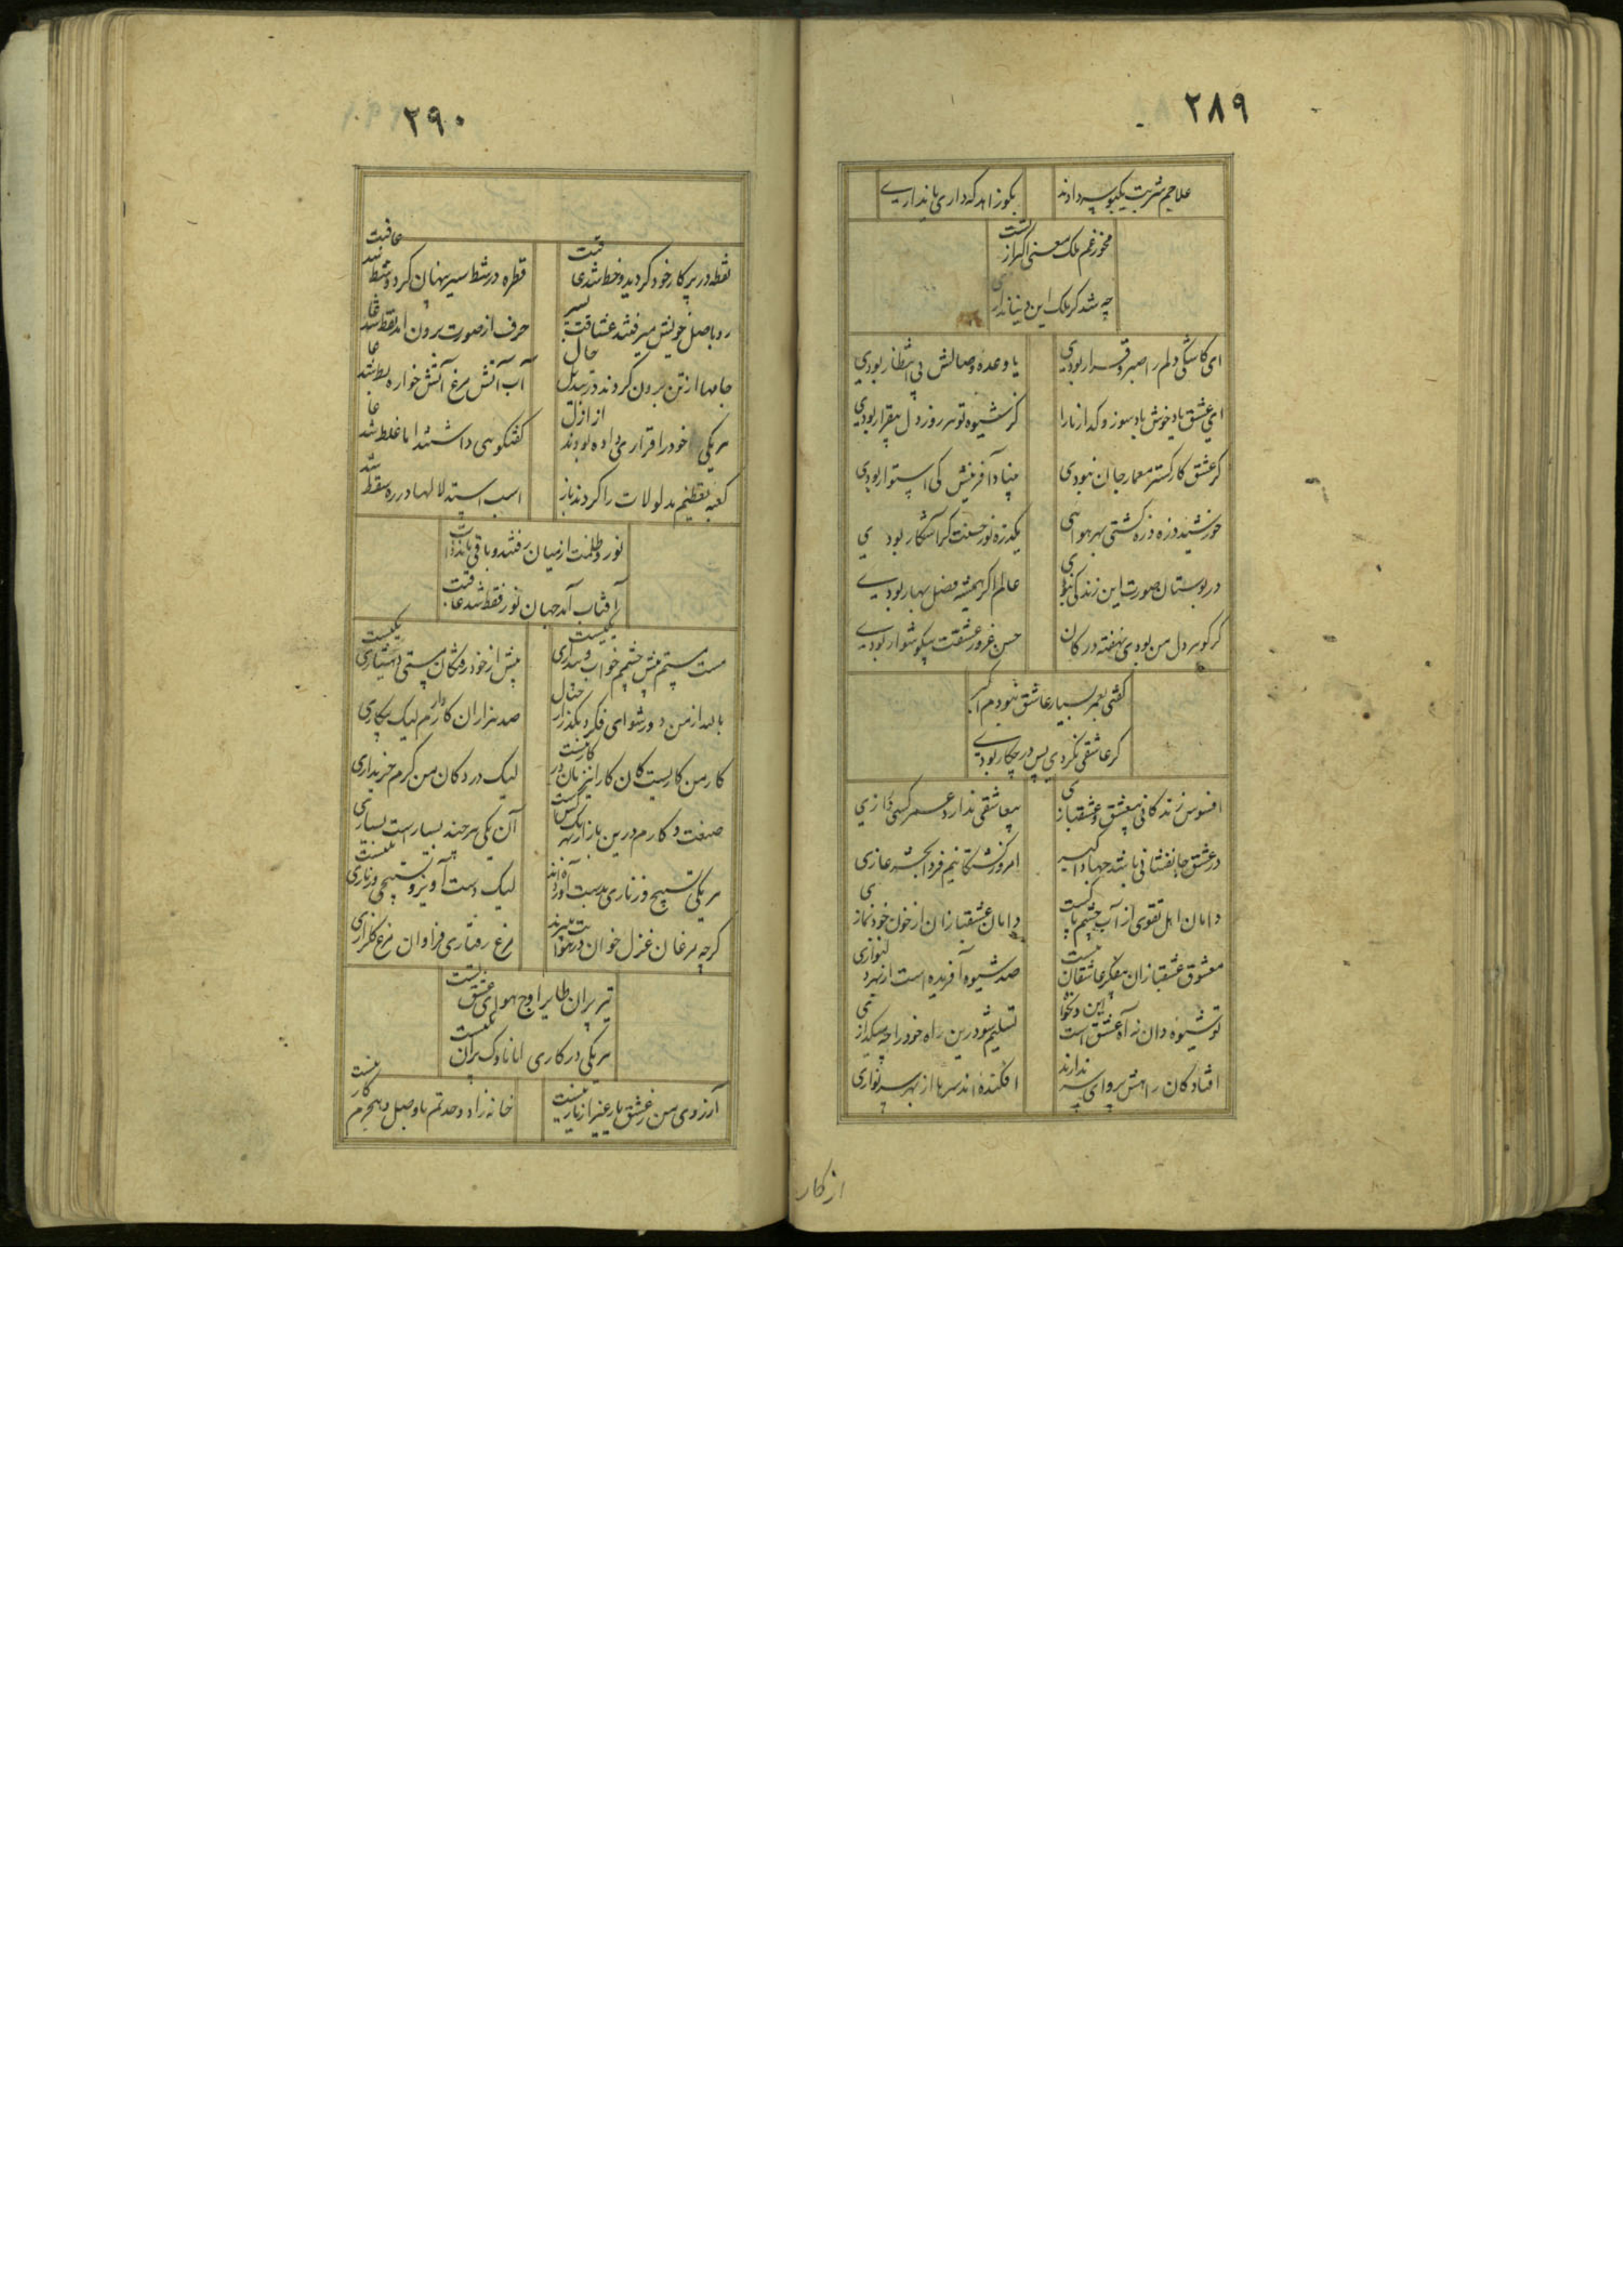 ۲۸۹
علاجم شربت یکبوسه دادند
بکو زاهد که داری یا نداری
مخور غم ملک معنی اکر از تست
چه شد کر ملک این دنیا نداری
ای کاشکی دلم را صبر و قرار بودی
یا وعده وصالش بی انتظار بودی
ای عشق باد خوش باد سوز و کداز ما را
کر شیوه تو هر روز دل بیقرار بودی
کر عشق کارکستر معمار جان نبودی
بنیاد آفرینش کی استوار بودی
خورشید ذره ذره کشتی بهر هوایی
یکذره نور حسنت کر آشکار بودی
در بوستان صورت این زندکی نبودی
عالم اکر همیشه فصل بهار بودی
کر کوهر دل من بودی نهفته در کان
حسن غرور عشقت بیکوشوار بودی
کفتی بعمر بسیار عاشق نبودم اکبر
کر عاشقی نکردی پس در چکار بودی
افسوس زندکانی بیعشق و عشقبازی
بیعاشقی ندارد عمر کسی درازی
در عشق جانفشانی باشد جهاد اکبر
امروز کشتکانیم فردا بحشر غازی
دامان اهل تقوی از آب چشم پاکست
دامان عشقبازان از خون خود نمازی
معشوق عشقبازان بفکر عاشقان نیست
صد شیوه آفریده است از بهر دلنوازی
تو شیوه دان نه آه عشق است این و تقوا
تسلیم شو درین راه خود را چه میکدازی
افتادکان راهش پروای سر ندارند
افکنده اند سرها از بهر سرفرازی
از کار
۲۹۰
نقطه در پرکار خود کردید و خط شد عاقبت
قطره در شط سیر پنهان کرد و شط شد عاقبت
رو باصل خویش میرفتند عشاقت بسیر
حرف از صورت برون آمد نقط شد عا
جامها از تن برون کردند در تبدیل حال
آب آتش مرغ آتش خواره بط شد عا
هر یکی خود را قراری داده بودند از ازل
کفتکویی داشتند اما غلط شد عا
کعبه تعظیم مدلولات را کردند باز
اسب استدلالها در ره سقط شد
نور و ظلمت از میان رفتند و باقی ماند ذات
آفتاب آمد جهان نور فقط شد عاقبت
مست مستم پیش چشمم خواب و بیداری یکیست
پیش از خود رفتکان مستی و هشیاری یکیست
باید از من دور شو ای فکر و بکذر ای خیال
صد هزاران کار دارم لیک بیکاری
کار من کاریست کان کار اینزمان در کار نیست
لیک در دکان من کرم خریداری
صنعت و کارم درین بازار بهر یک کس است
آن یکی هر چند بسیارست بسیاری
هر یکی تسبیح و زناری بدست آورده اند
لیک دست آویز و تسبیحی و زناری یکیست
کرچه مرغان غزل خوان در هوایت میپرند
مرغ رفتاری فراوان مرغ کلزاری
تیر پران طایر اوج هوای عشق تست
هر یکی در کاری اما ناوک پران یکیست
آرزوی من ز عشق یار غیر از یار نیست
خانه زاد وحدتم با وصل و هجرم کار نیست